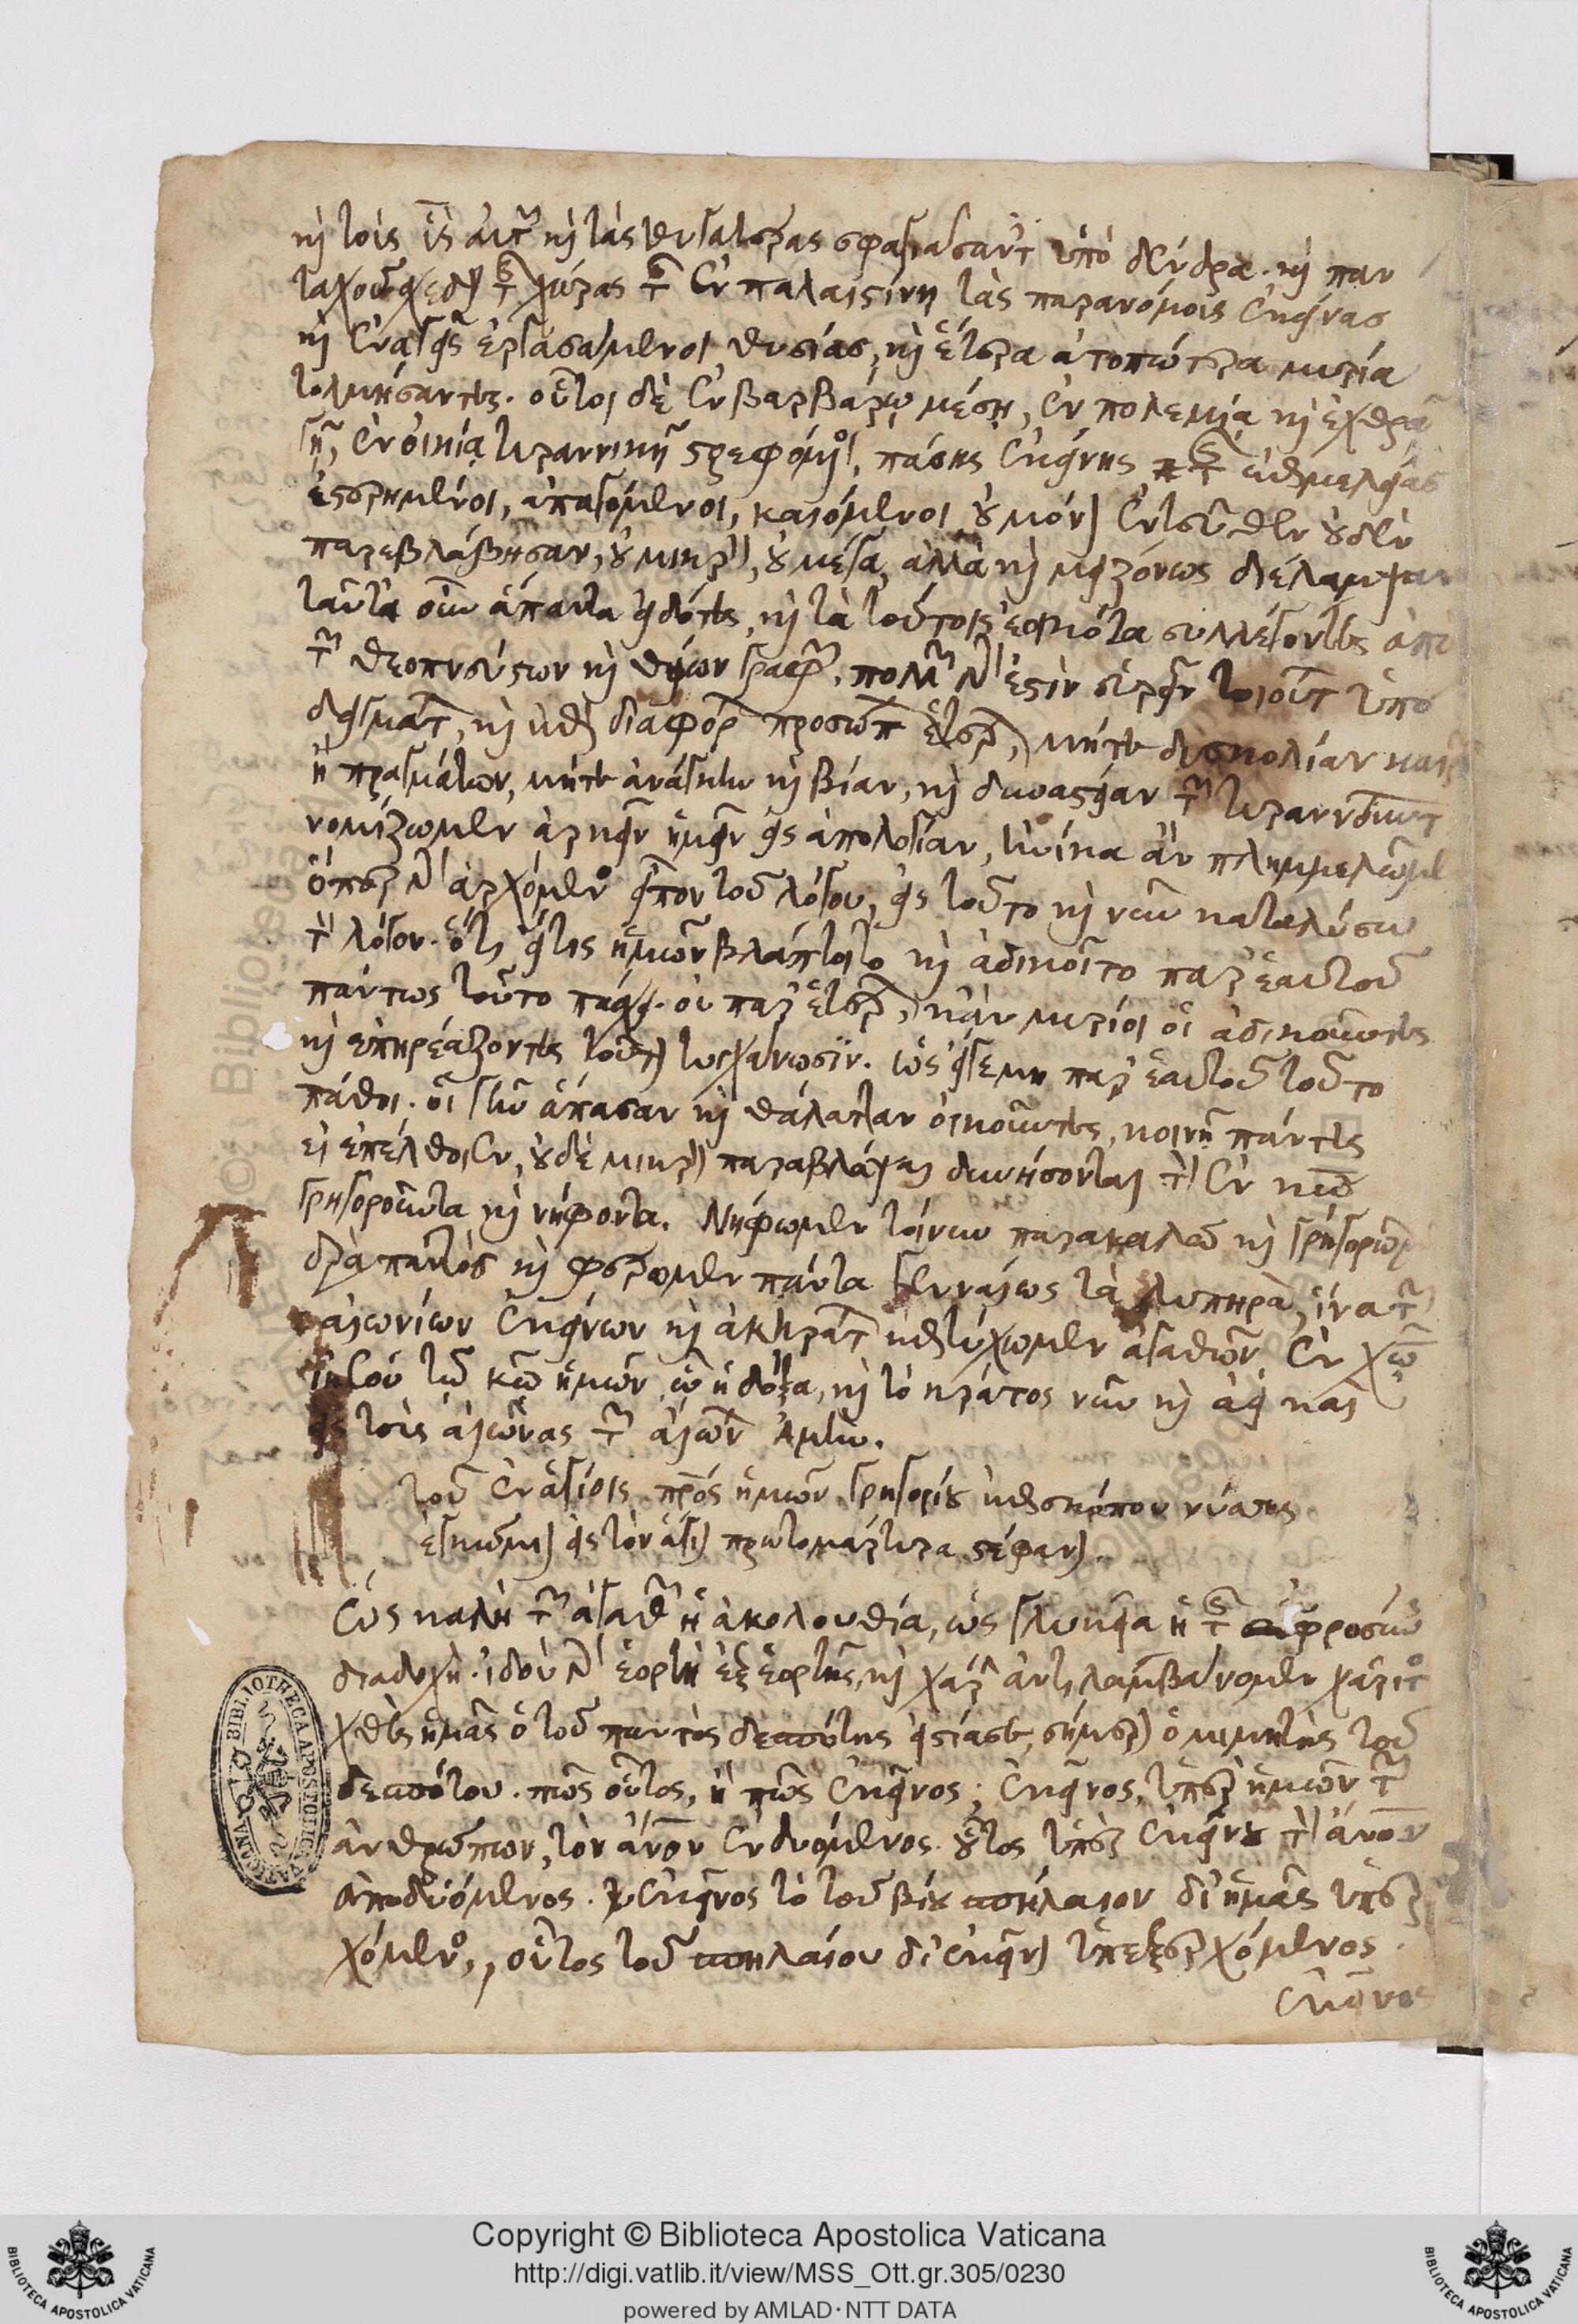 καὶ τοὺς υἱοὺς αὐτῶν καὶ τὰς θυγατέρας σφαγιάσαντες ὑπὸ δένδρα. καὶ παν
ταχοῦ σχεδὸν τῆς χώρας τῆς ἐν παλαιστίνη τὰς παρανόμους ἐκείνας
καὶ ἐναγεῖς ἐργασάμενοι θυσίας, καὶ ἕτερα ἀτοπώτερα μυρία
τολμήσαντες. οὗτοι δὲ ἐν βαρβάρω μέση, ἐν πολεμία καὶ ἐχθρᾶ
γῆ, ἐν οἰκία τυραννικῆ στρεφόμενοι, πάσης ἐκείνης τῆς ἐπιμελείας
ἐστερημένοι, ἀπαγόμενοι, καιόμενοι οὐ μόνον ἐντεῦθεν οὐδὲν
παρεβλάβησαν, οὐ μικρὸν, οὐ μέγα, ἀλλὰ καὶ μειζόνως διέλαμψαν
ταῦτα οὖν ἅπαντα εἰδότες, καὶ τὰ τούτοις ἐοικότα συλλέγοντες ἀπὸ
τῶν θεοπνεύστων καὶ θείων γραφῶν, πολλῶν γὰρ ἐστὶν εὑρεῖν τοιούτων ὑπο
δειγμάτων, καὶ ἐπὶ διαφόρων προσώπων ἑτέρων, μήτε δυσκολίαν καιρῶν
ἢ πραγμάτων, μήτε ἀνάγκην καὶ βίαν, καὶ δυναστείαν τῶν τυραννούντων
νομίζωμεν ἀρκεῖν ἡμῖν εἰς ἀπολογίαν, ἡνίκα ἂν πλημμελῶμεν
ὅπερ γὰρ ἀρχόμενος εἶπον τοῦ λόγου, εἰς τοῦτο καὶ νῦν καταλύσω
τὸν λόγον. ὅτι εἴτις ἡμῶν βλάπτοιτο καὶ ἀδικοῖτο παρ' ἑαυτοῦ
πάντως τοῦτο πάσχει. οὐ παρ' ἑτέρων, κἂν μυρίοι οἱ ἀδικοῦντες
καὶ ἐπηρεάζοντες τοῦτον τυγχάνωσιν. ὡς εἴγε μὴ παρ' ἑαυτοῦ τοῦτο
πάθοι. οἱ γῆν ἅπασαν καὶ θάλατταν οἰκοῦντες, κοινῆ πάντες
εἰ ἐπέλθοιεν, οὐδὲ μικρὸν παραβλάψαι δυνήσονται τὸν ἐν κω
γρηγοροῦντα καὶ νήφοντα. Νήφωμεν τοίνυν παρακαλῶ καὶ γρηγορῶμεν
διὰ παντὸς καὶ φέρωμεν πάντα γενναίως τὰ λυπηρὰ, ἵνα τῶν
αἰωνίων ἐκείνων καὶ ἀκηράτων ἐπιτύχωμεν ἀγαθῶν, ἐν χω
ἰησοῦ τῶ κω ἡμῶν ὧ ἡ δόξα, καὶ τὸ κράτος νῦν καὶ ἀεὶ καὶ
εἰς τοὺς αἰῶνας τῶν αἰώνων ἀμήν.
τοῦ ἐν ἁγίοις πρς ἡμῶν γρηγορίου ἐπισκόπου νύσσης
ἐγκώμιον εἰς τὸν ἅγιον πρωτομάρτυρα στέφανον.
Ὡς καλὴ τῶν ἀγαθῶν ἡ ἀκολουθία, ὡς γλυκεῖα ἡ τῆς εὐφροσύνης
διαδοχὴ. ἰδοὺ γὰρ ἑορτὴν ἐξ ἑορτῆς, καὶ χάριν ἀντιλαμβάνομεν χάριτος
χθὲς ἡμᾶς ὁ τοῦ παντὸς δεσπότης εἱστίασε, σήμερον ὁ μιμητὴς τοῦ
δεσπότου. πῶς οὗτος, ἢ πῶς ἐκεῖνος; ἐκεῖνος, ὑπὲρ ἡμῶν τῶν
ἀνθρώπων, τὸν ἄνον ἐνδυόμενος. οὗτος ὑπὲρ ἐκείνου τὸν ἄνον
ἀποδυόμενος. ἐκεῖνος τὸ τοῦ βίου σπήλαιον δι' ἡμᾶς ὑπερ
χόμενος, οὗτος τοῦ σπηλαίου δι' ἐκεῖνον ὑπεξερχόμενος.
ἐκεῖνος
BIBLIOTHECA APOSTOLICA VATICANA
Copyright © Biblioteca Apostolica Vaticana
http://digi.vatlib.it/view/MSS_Ott.gr.305/0230
powered by AMLAD·NTT DATA